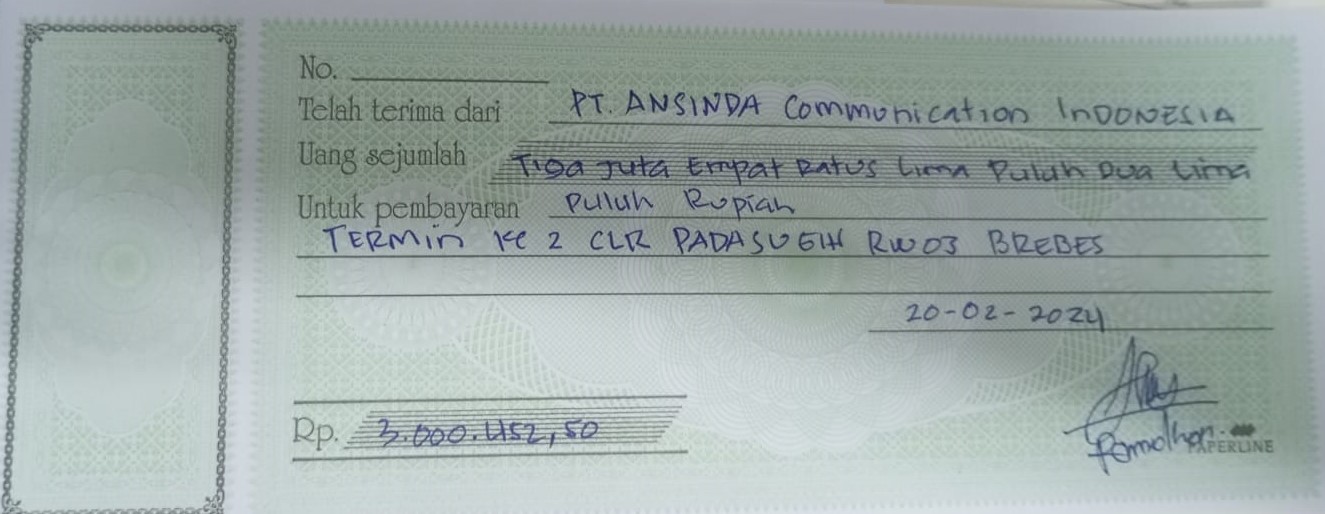 No.
Telah terima dari PT. ANSINDA Communication INDONESIA
Uang sejumlah Tiga Juta Empat Ratus Lima Puluh Dua Lima
Untuk pembayaran Puluh Rupiah
TERMIN Ke 2 CLR PADASUGIH RW03 BREBES
20-02-2024
Rp. 3.000.452,50
PAPERLINE